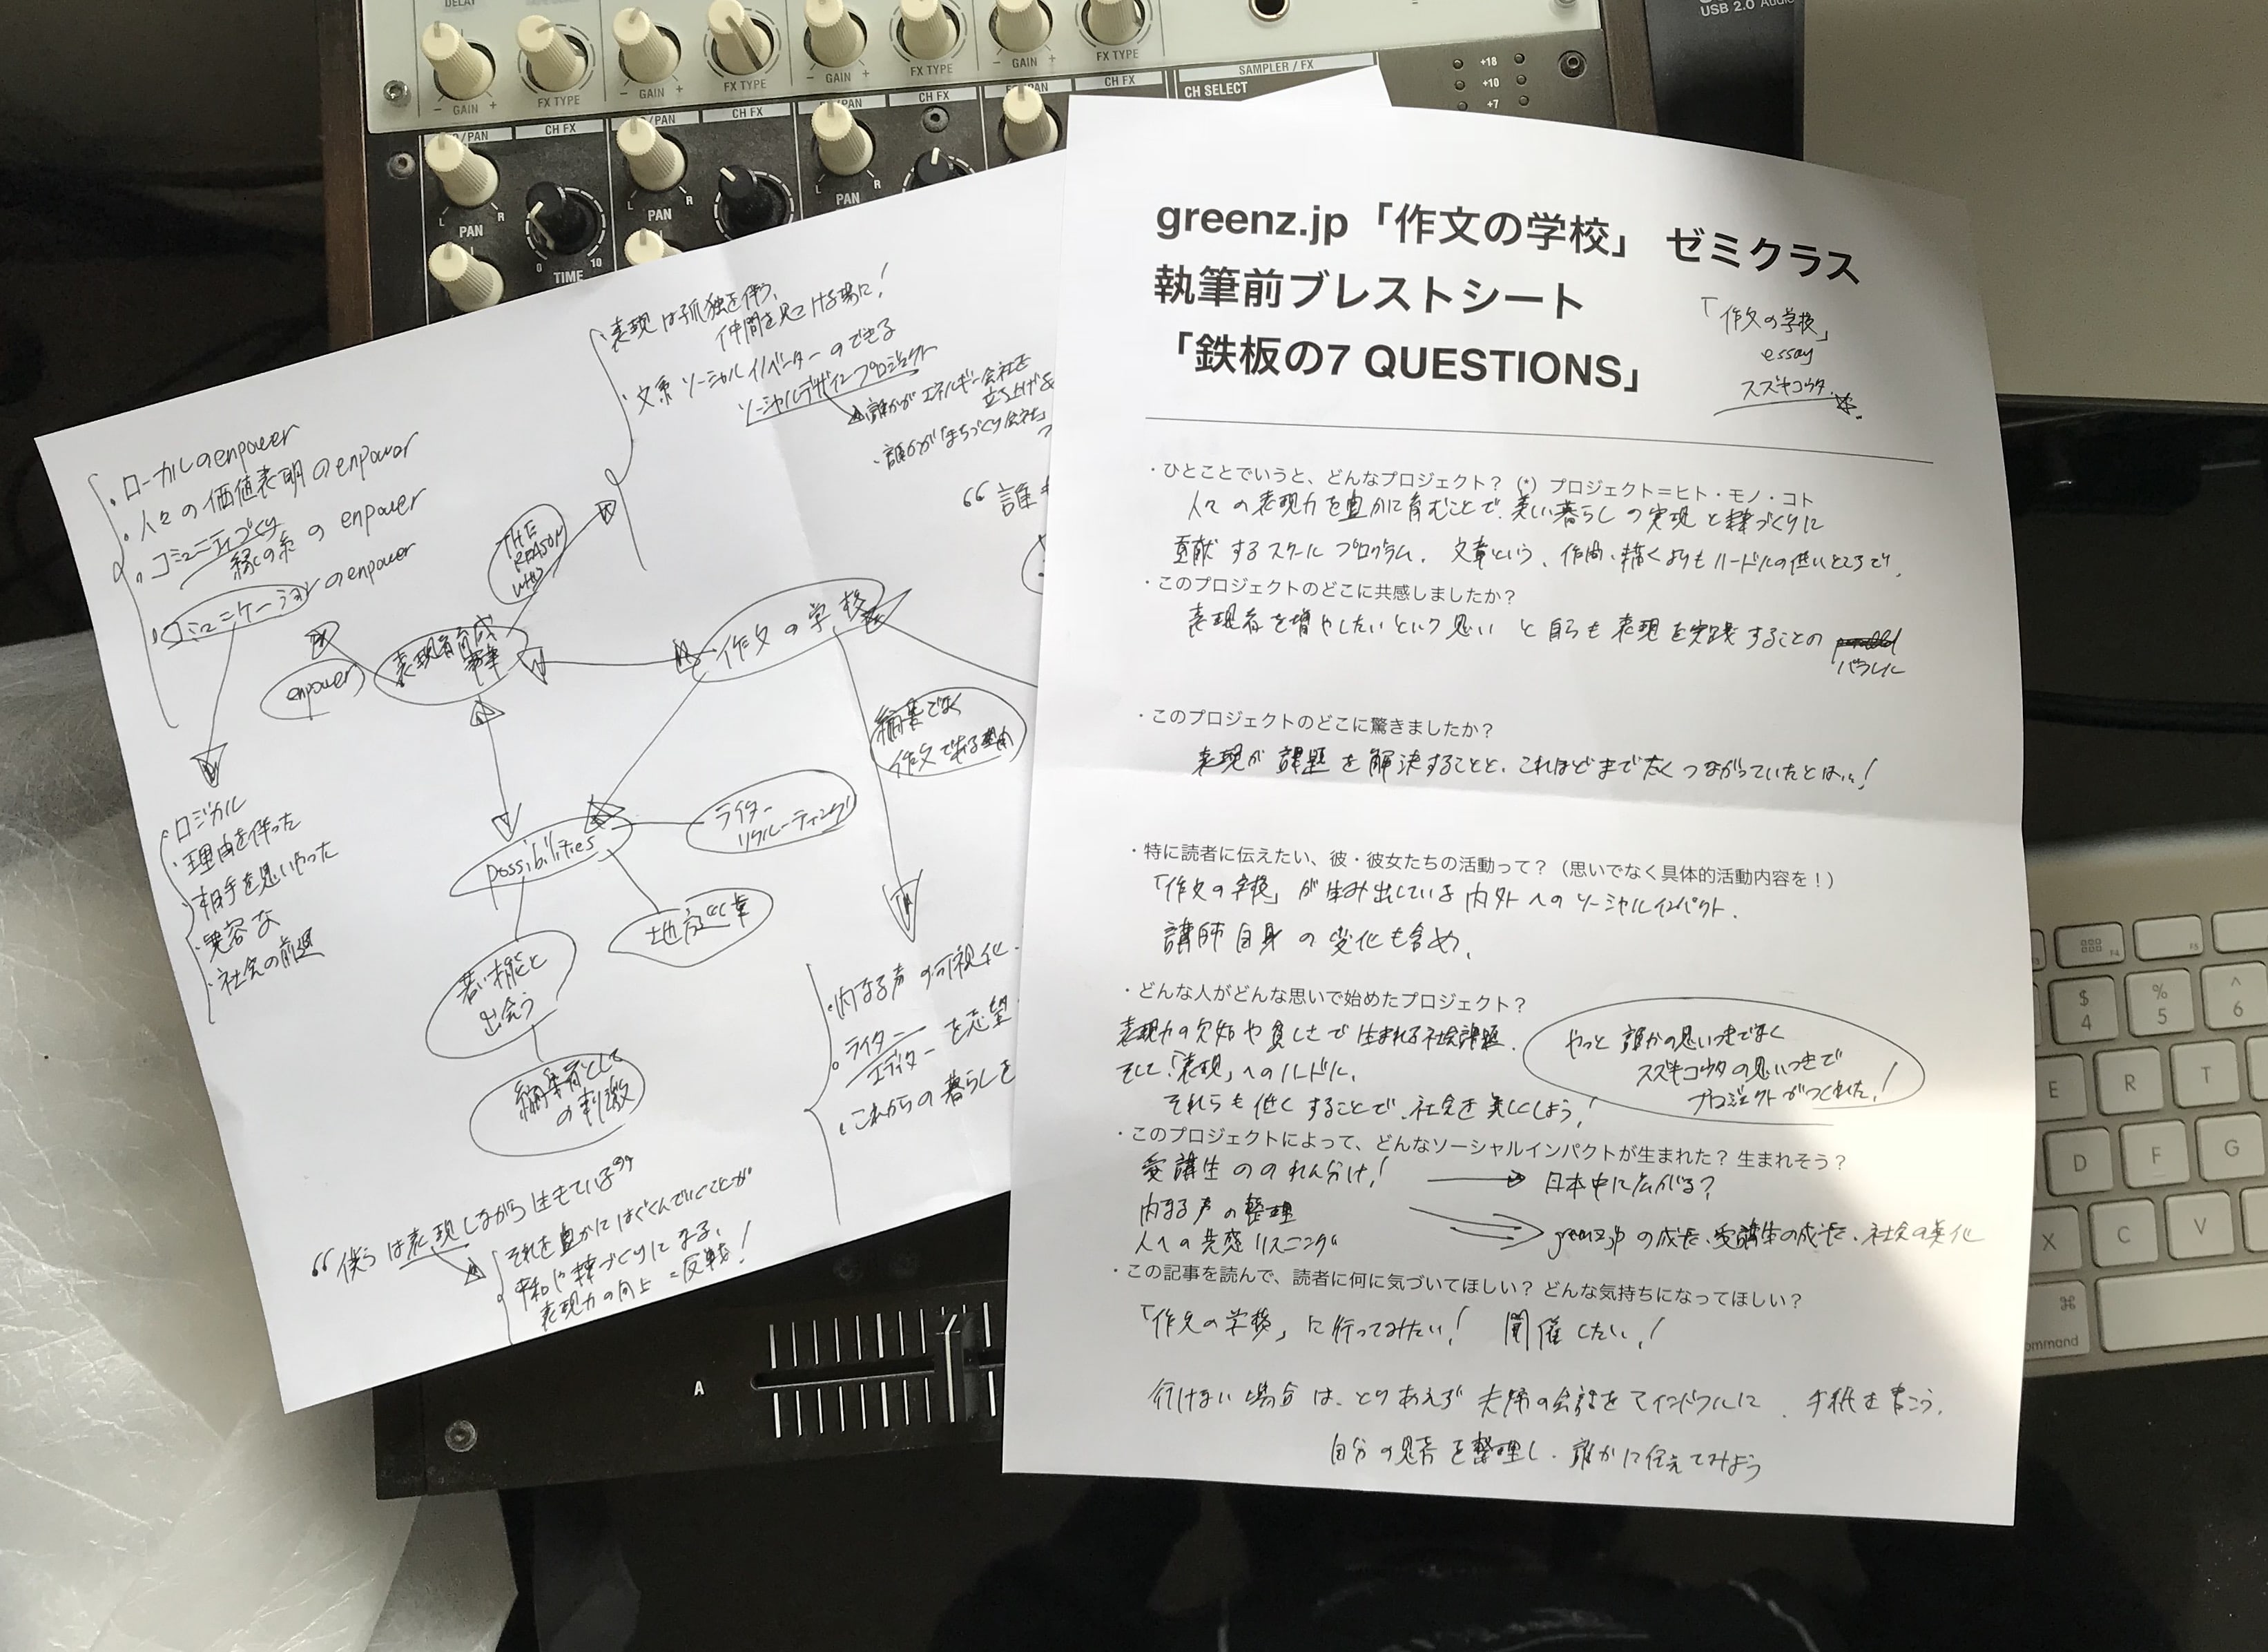 DELAY
USB 2.0 Audio
- GAIN +
FX TYPE
- GAIN +
FX TYPE
- GAIN +
FX TYPE
- GAIN +
FX TYPE
SAMPLER / FX
CH SELECT
+18
+10
+7
/PAN
CH FX
/PAN
CH FX
/PAN
CH FX
PAN
CH FX
L R
PAN
L R
PAN
L R
PAN
0 10
TIME
greenz.jp「作文の学校」 ゼミクラス
執筆前ブレストシート
「鉄板の7 QUESTIONS」
「作文の学校」
essay
スズキコウタ
・ひとことでいうと、どんなプロジェクト？（*）プロジェクト＝ヒト・モノ・コト
人々の表現力を豊かに育むことで、美しい暮らしの実現と絆づくりに
貢献するスクールプログラム。文章という、作曲、描くよりもハードルの低いところで。
・このプロジェクトのどこに共感しましたか？
表現者を増やしたいという思いと自らも表現を実践することの
パラレル
・このプロジェクトのどこに驚きましたか？
表現が課題を解決することと、これほどまで太くつながっていたとは…！
・特に読者に伝えたい、彼・彼女たちの活動って？（思いでなく具体的活動内容を！）
「作文の学校」が生み出している内外へのソーシャルインパクト。
講師自身の変化も含め。
・どんな人がどんな思いで始めたプロジェクト？
表現力の欠如や貧しさで生まれる社会課題。
そして、「表現」へのハードル。
それらも低くすることで、社会を美しくしよう！
やっと誰かの思いつきでなく
スズキコウタの思いつきで
プロジェクトがつくれた！
・このプロジェクトによって、どんなソーシャルインパクトが生まれた？ 生まれそう？
受講生ののれん分け！
日本中に広がる？
内なる声の整理
人への共感リスニング
greenz.jpの成長、受講生の成長、社会の美化
・この記事を読んで、読者に何に気づいてほしい？ どんな気持ちになってほしい？
「作文の学校」に行ってみたい！ 開催したい！
行けない場合は、とりあえず夫婦の会話をマインドフルに、手紙を書こう。
自分の思考を整理し、誰かに伝えてみよう
・表現は孤独を伴う、
仲間を見つける場に！
・文系ソーシャルイノベーターのできる
ソーシャルデザインプロジェクト
・誰かがエネルギー会社を
立ち上げる
・誰かが「まちづくり会社」
“誰も
・ローカルのenpower
・人々の価値表明のenpower
・コミュニティづくり
縁の糸のenpower
・コミュニケーションのenpower
THE
REASON
WHY
enpower
表現者育成
事業
作文の学校
編集でなく
作文である理由
possibilities
ライター
リクルーティング
地方仕事
若い才能と
出会う
編集者として
の刺激
・ロジカル
・理由を伴った
・相手を思いやった
・寛容な
・社会の前進
・内なる声の可視化
・ライター
エディターを志望
・これからの暮らしを
“僕らは表現しながら生きている”
それを豊かにはぐくんでいくことが
平和や絆づくりになる、
表現力の向上＝反戦！
A
$
4
%
5
^
6
E
R
T
D
F
G
X
C
V
⌘
command